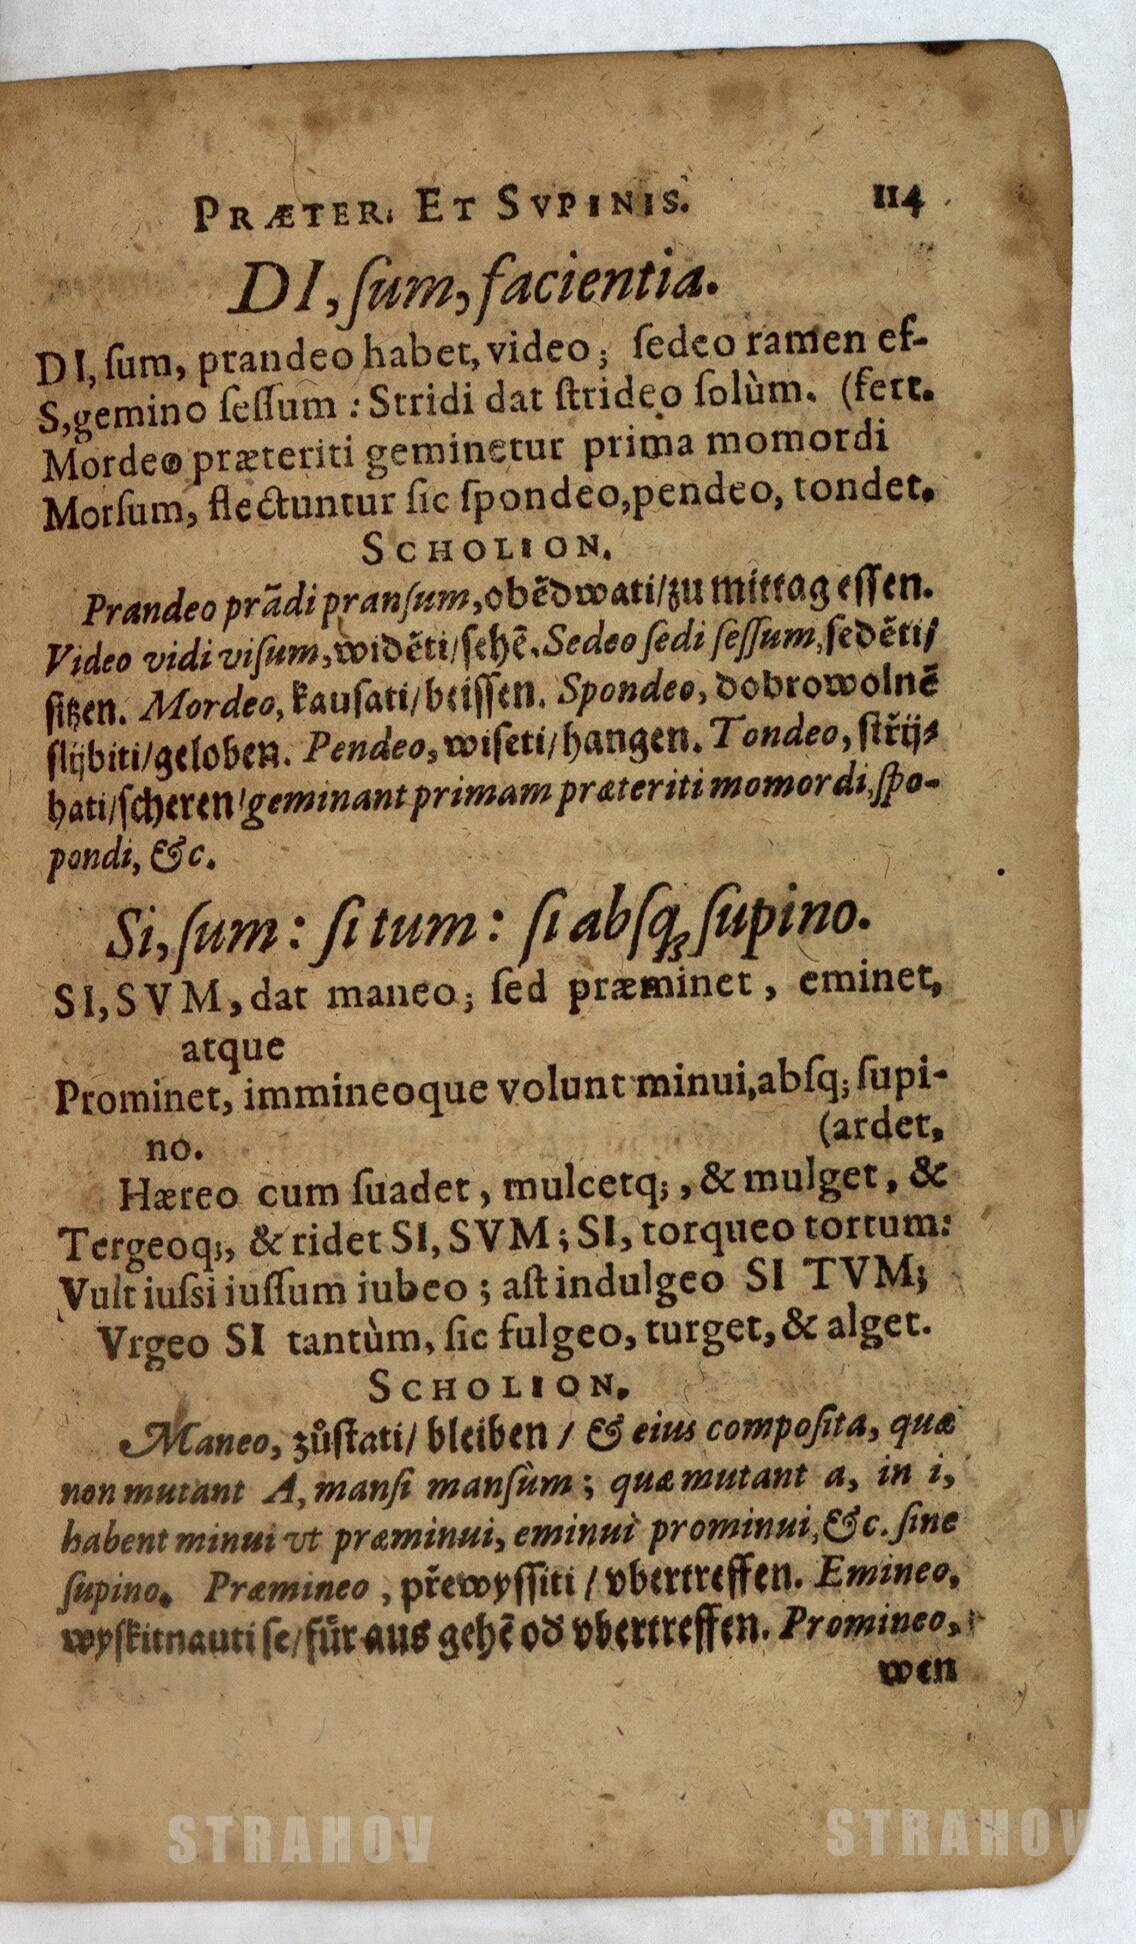 PRÆTER. ET SVPINIS. 114
DI, ſum, facientia.
DI, ſum, prandeo habet, video; ſedeo tamen ef-
S, gemino ſeſſum : Stridi dat ſtrideo ſolùm. (fert.
Mordeo præteriti geminetur prima momordi
Morſum, flectuntur ſic ſpondeo, pendeo, tondet.
SCHOLION.
Prandeo prãdi pranſum, obědwati/zu mittag eſſen.
Video vidi viſum, widěti/ſehẽ. Sedeo ſedi ſeſſum, ſeděti/
ſitzen. Mordeo, kauſati/beiſſen. Spondeo, dobrowolně
ſlijbiti/geloben. Pendeo, wiſeti/hangen. Tondeo, ſtřij-
hati/ſcheren/geminant primam præteriti momordi, ſpo-
pondi, &c.
Si, ſum : ſi tum : ſi abſq; ſupino.
SI, SVM, dat maneo; ſed præminet, eminet,
atque
Prominet, immineoque volunt minui, abſq; ſupi-
no. (ardet,
Hæreo cum ſuadet, mulcetq;, & mulget, &
Tergeoq;, & ridet SI, SVM; SI, torqueo tortum:
Vult iuſsi iuſſum iubeo; aſt indulgeo SI TVM;
Vrgeo SI tantùm, ſic fulgeo, turget, & alget.
SCHOLION.
Maneo, zůſtati/ bleiben / & eius compoſita, quæ
non mutant A, manſi manſùm; quæ mutant a, in i,
habent minui vt præminui, eminui prominui, &c. ſine
ſupino. Præmineo, přewyſſiti / vbertreffen. Emineo,
wyſkitnauti ſe/ fůr aus gehẽ od vbertreffen. Promineo,
wen
STRAHOV STRAHOV